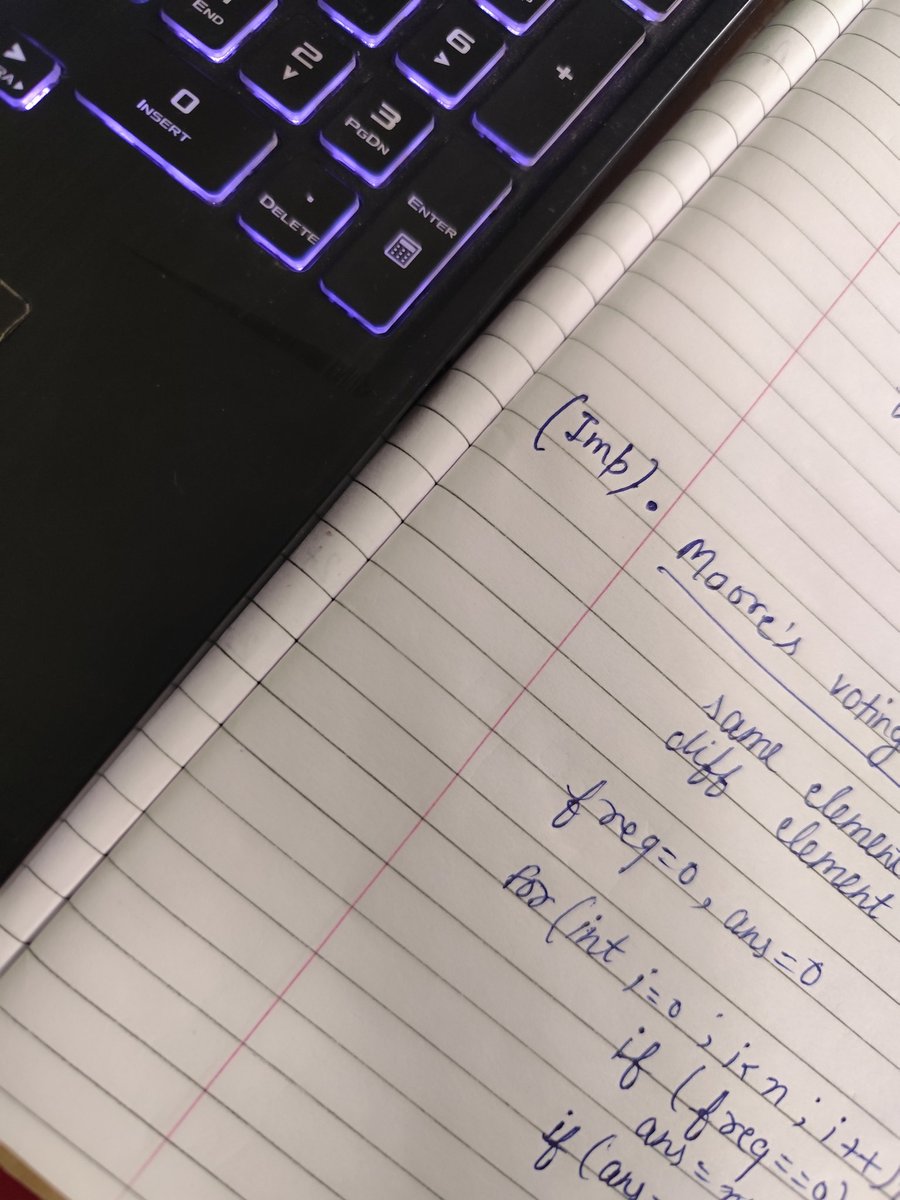 END
2
6
+
0
INSERT
3
PGDN
.
DELETE
ENTER
(Imp).
Moore's voting
same element
diff element
freq=0, ans=0
for (int i=0; i<n; i++)
if (freq==0)
ans=
if (ans